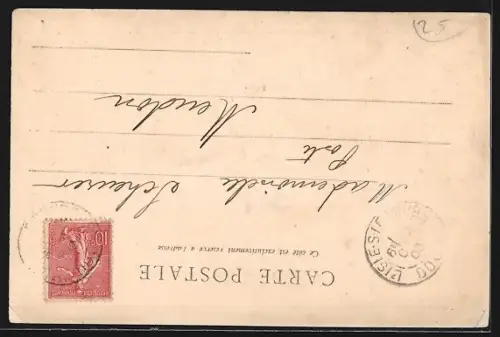 CARTE POSTALE
Ce côté est exclusivement réservé à l'adresse
Mademoiselle Scheurer
Poste
Meudon
10
L'ISLE-S
25